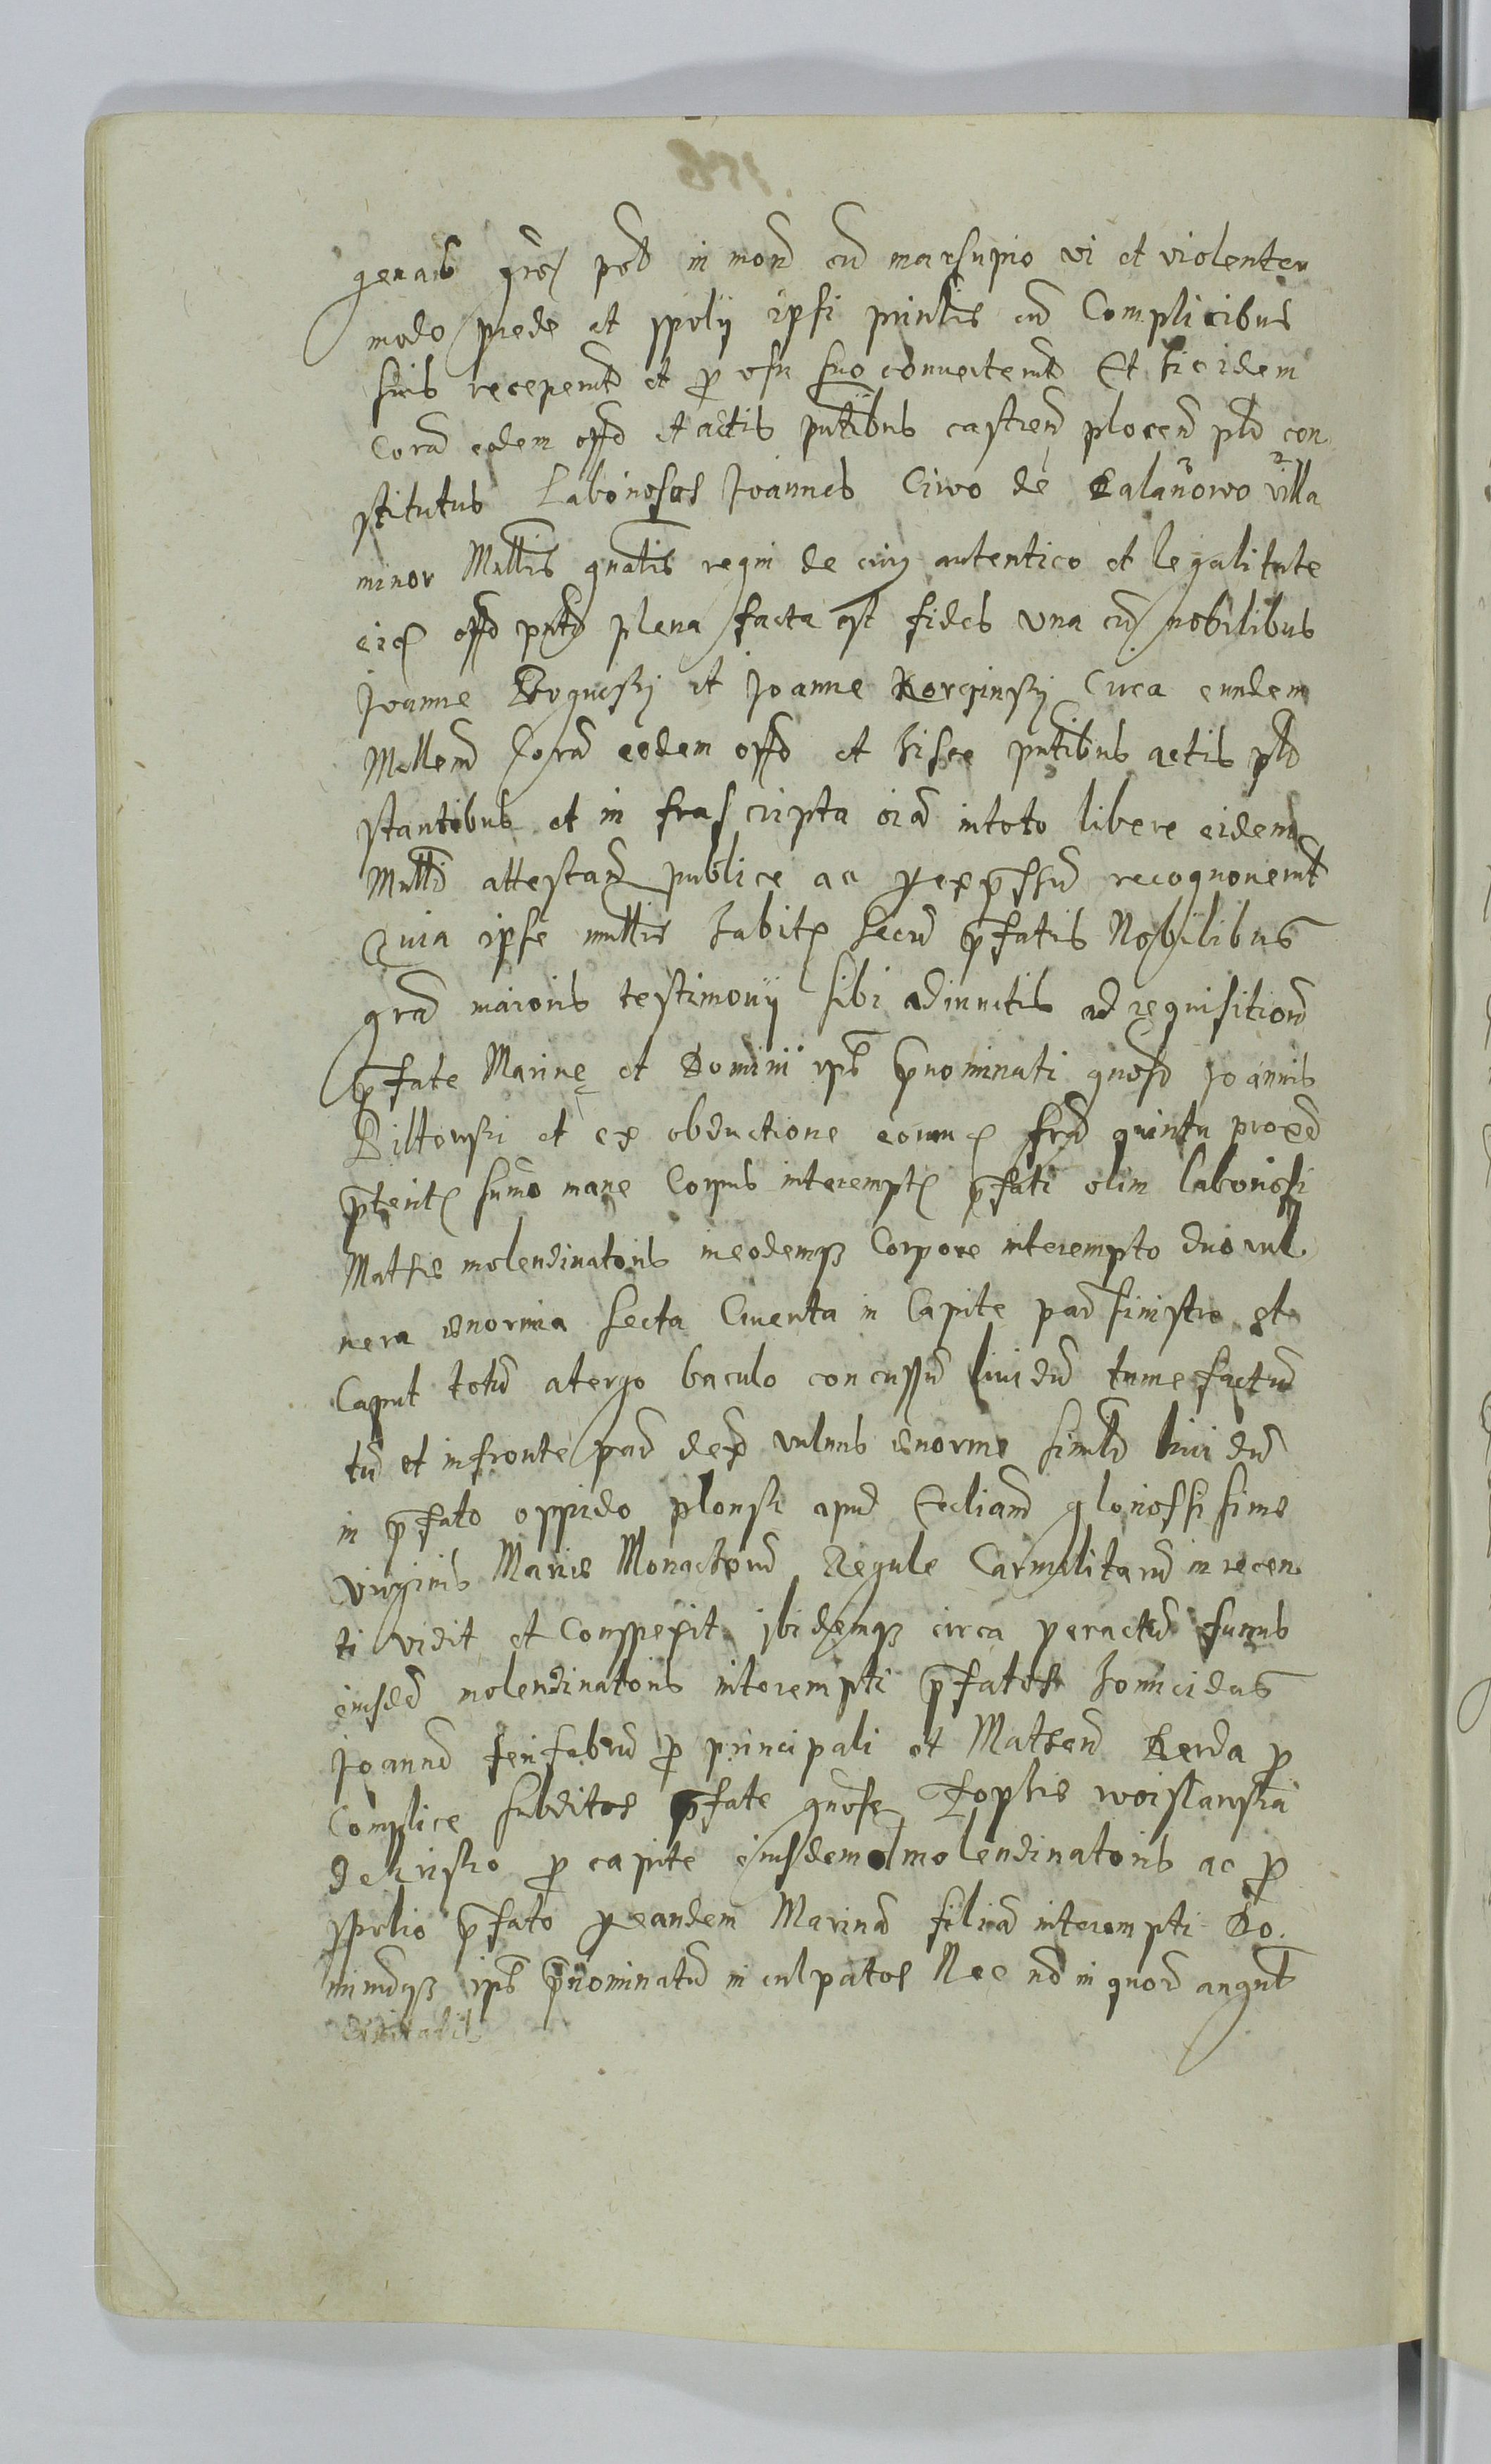 geraĩs grõs ptd in moñ cũ marsupio vi et violenter
modo prede et spolij ipsi prinłes cũ Complicibus
suis receperũt et ꝑ usu suo converterũt Et hic idem
Corã eodem offõ et actis pñtibus castreñ ploceñ płr con
stitutus Laboriosus Joannes Ciwo de Galanowo villa
minor Młłris gñalis regni de cuiꝰ autentico et legalitate
eidẽ offõ pñti plena facta est fides una cũ nobilibus
Joanne Bogucskj et Joanne Korczinskj Circa eundem
Młłem Corã eodem offõ et hisce pñtibus actis płr
stantibus et in frascripta oĩa intoto libere eidem
Młłri attestañ publice ac ꝑ exp̃ssum recognoverũt
Quia ipse młłris habitis secũ p̃fatis Nobilibus
grã maioris testimonij sibi adiunctis ad requisitionẽ
p̃fate Marinę et Domini ips p̃nominati gnosi Joannis
et ex obductione eorum frã quinta proxã
p̃terita sũmo mane Corpus interempti p̃fati olim laboriosi
Mathie molendinatoris ineodemqꝫ Corpore interempto duo vul
nera enormia secta Cruenta in Capite parĩ sinistro et
Caput totũ atergo baculo concussũ lividũ tumefactũ
tũ et infronte parĩ dexã vulnus enorme similr lividũ
in p̃fato oppido plonsk apud Eccliam gloriossissime
virginis Marie Monachorũ Regule Carmelitarũ in recen
ti vidit et Conspexit ibidemqꝫ circa peractũ funus
eiusdẽ molendinatoris interempti p̃fatos homicidas
Joannẽ ferifabrũ ꝑ principali et Mathiam Kerda ꝑ
Complice subditos p̃fate gnose Zophie woislawska
de ꝑ capite eiusdem molendinatoris ac ꝑ
spolio p̃fato ꝑ eandem Marinã filiã interempti Do
minũqꝫ ips p̃nominatũ inculpatos Nec nõ in quorũ